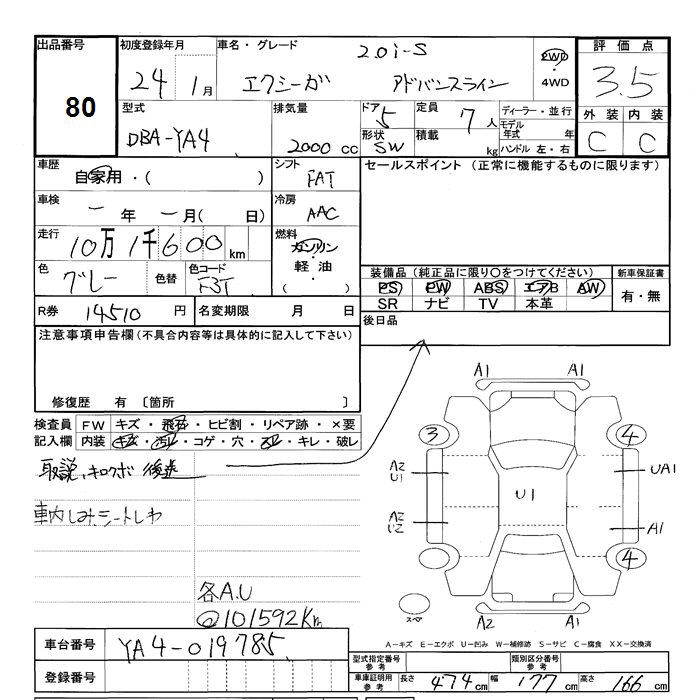 出品番号 初度登録年月 車名・グレード 2.0i-S 2WD 評価点
80 24 1月 エクシーガ アドバンスライン 4WD 3.5
型式 排気量 ドア 5 定員 7人 ディーラー・並行 外装 内装
モデル年式 年
DBA-YA4 2000 cc 形状 SW 積載 kg ハンドル 左・右 C C
車歴 自家用・( ) シフト FAT セールスポイント (正常に機能するものに限ります)
車検 ー年 ー月( 日) 冷房 AAC
走行 10万1千600km 燃料 ガソリン
軽油
( )
色 グレー 色替 色コード
装備品 (純正品に限り〇をつけてください) 新車保証書
PS PW ABS エアB AW 有・無
SR ナビ TV 本革
R券 14510円 名変期限 月 日 後日品
注意事項申告欄(不具合内容等は具体的に記入して下さい)
修復歴 有 〔箇所 〕
検査員 FW キズ・飛石・ヒビ割・リペア跡・×要
記入欄 内装 キズ・汚れ・コゲ・穴・スレ・キレ・破レ
取説、キロクボ 後送
車内しみ、シートしわ
各A.U
@101592Km
A1 A1
3 4
A2 U1 UA1
U1
A2 U2 A1
4
スペ A2 A1
A-キズ E-エクボ U-凹み W-補修跡 S-サビ C-腐食 XX-交換済
車台番号 YA4-019785 型式指定番号 参考 類別区分番号 参考
登録番号 車庫証明用 参考 長さ 474cm 幅 177cm 高さ 166cm